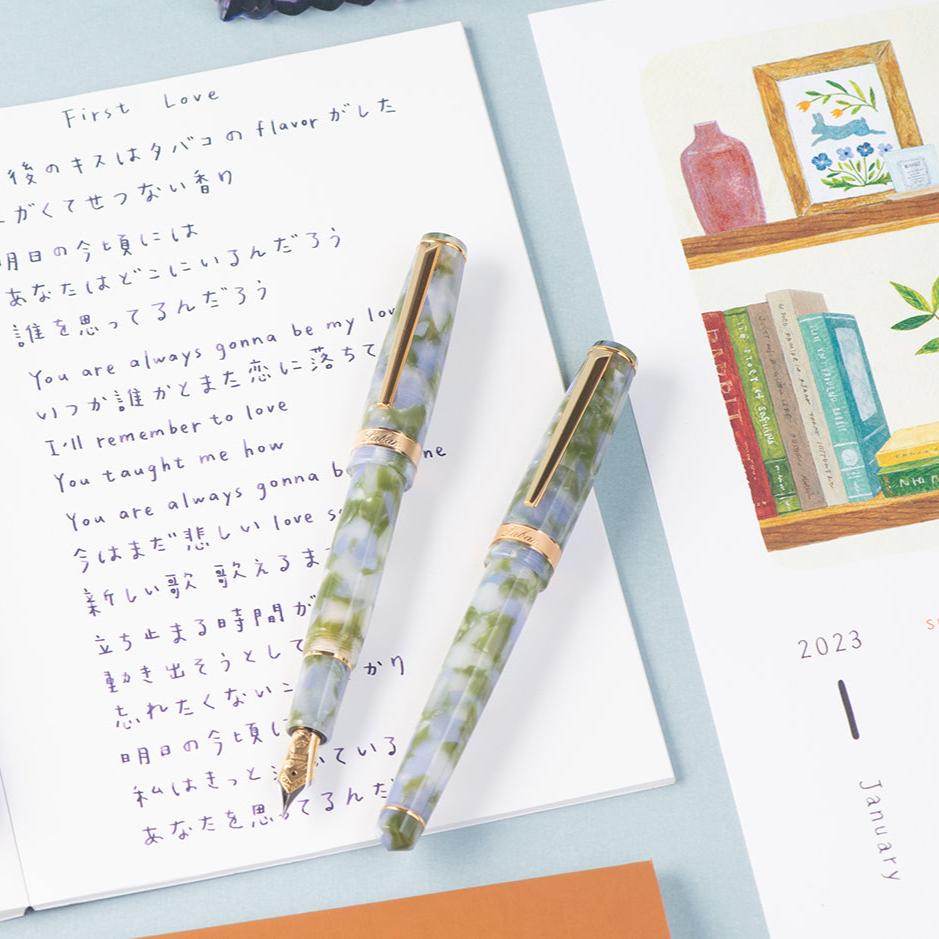 First Love
後のキスはタバコの flavor がした
がくてせつない香り
明日の今頃には
あなたはどこにいるんだろう
誰を思ってるんだろう
You are always gonna be my lo
いつか誰かとまた恋に落ちて
I'll remember to love
You taught me how
You are always gonna b ne
今はまだ悲しい love s
新しい歌 歌えるま
立ち止まる時間が
動き出そうとして
忘れたくないこ かり
明日の今頃に
私はきっと ている
あなたを思ってるんだ
2023
1
January